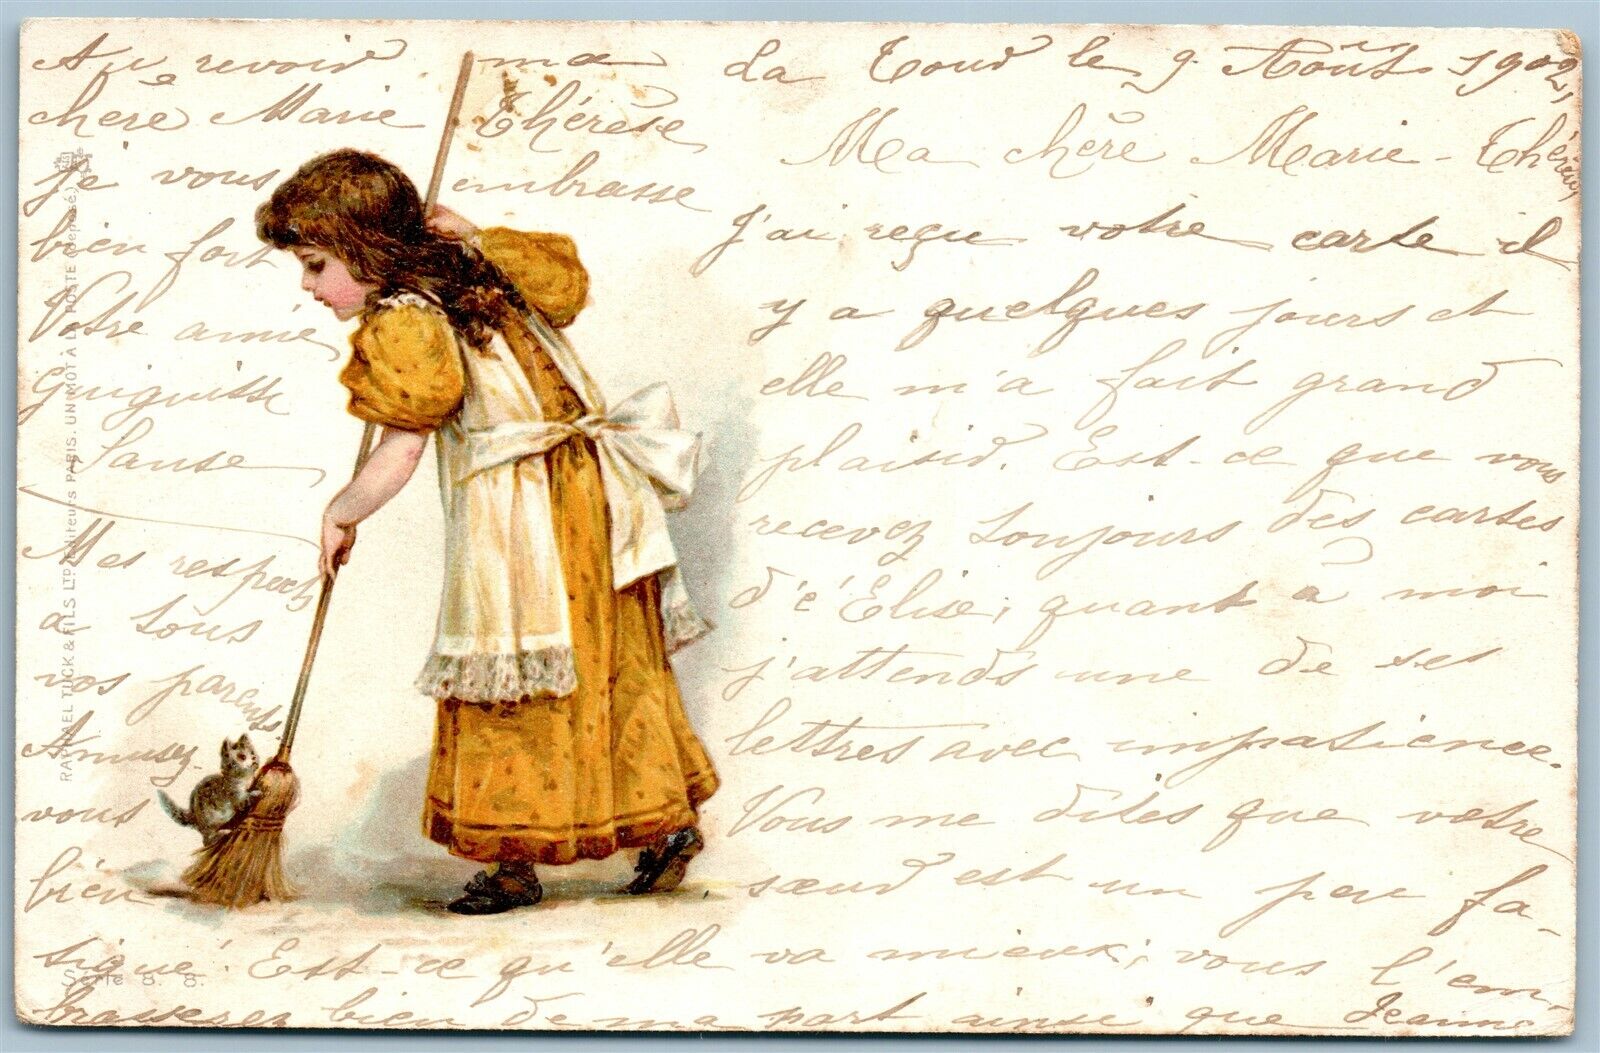 La Tour le 9 Août 1902,
Ma chère Marie-Thérèse,
J'ai reçu votre carte il
y a quelques jours et
elle m'a fait grand
plaisir. Est-ce que vous
recevez toujours des cartes
d'Elise, quant à moi
j'attends une de ses
lettres avec impatience.
Vous me dites que votre
sœur est un peu fa-
tigué. Est-ce qu'elle va mieux; vous l'em-
brasserez bien de ma part ainsi que Jeanne
Au revoir ma
chère Marie Thérèse
je vous embrasse
bien fort
Votre amie
Mes respects
à tous
vos parents
Amusez-
vous
bien
RAPHAEL TUCK & FILS LTD Editeurs PARIS. UN MOT À LA POSTE (Déposé.)
Serie 8. 8.